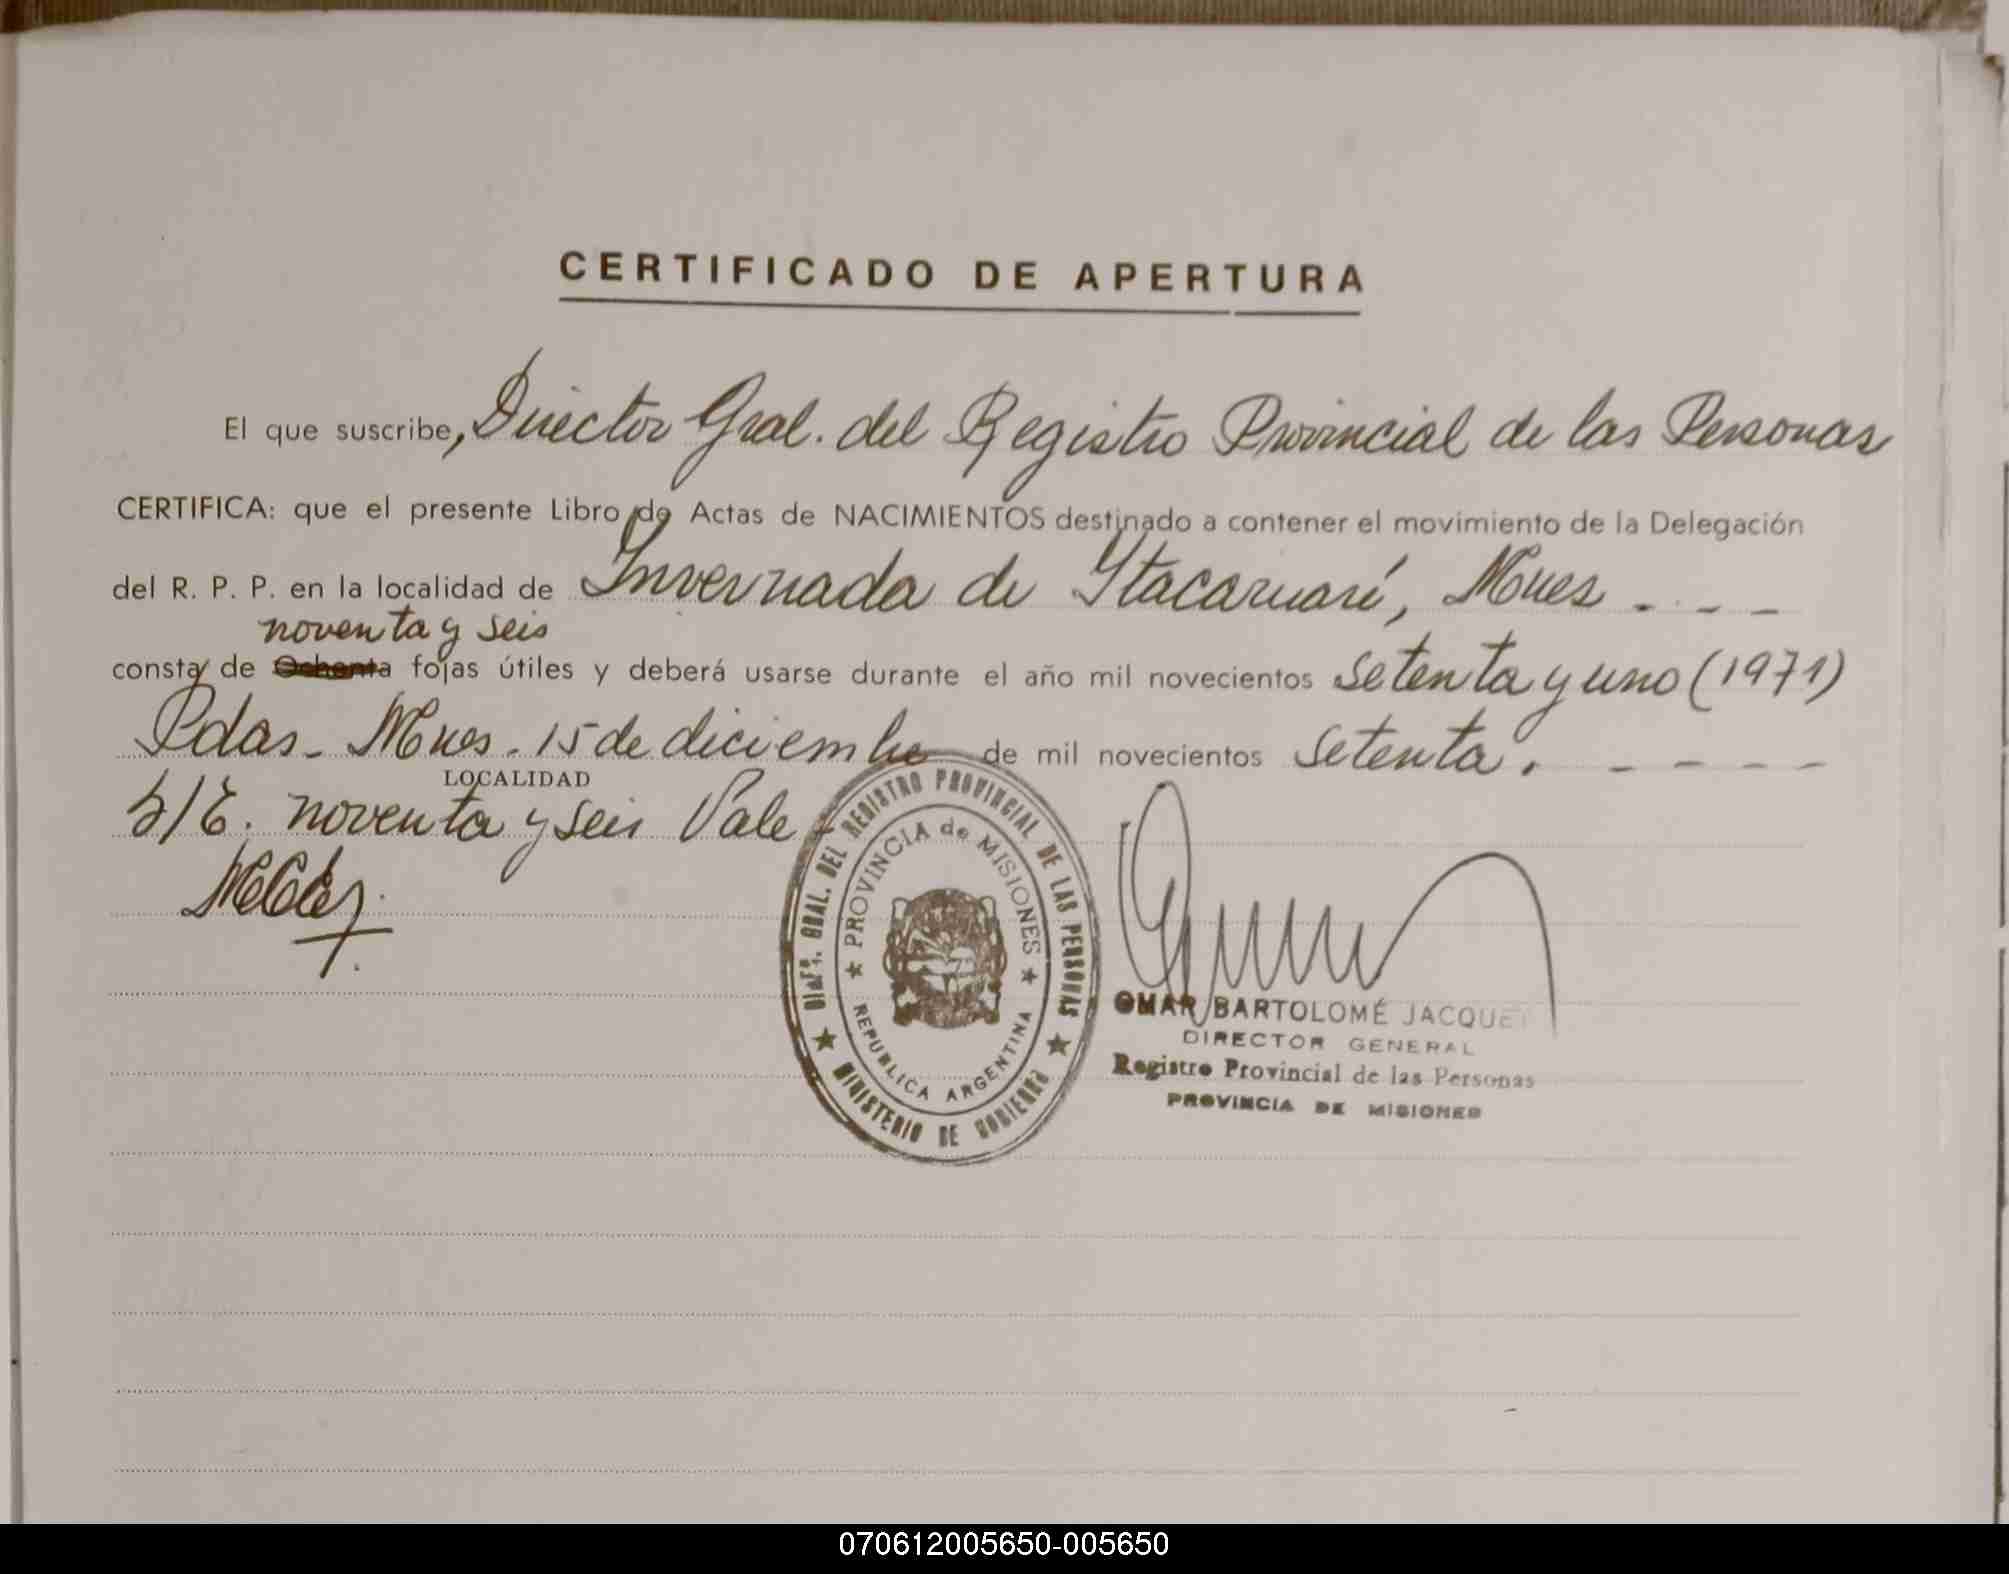 CERTIFICADO DE APERTURA
El que suscribe, Director Gral. del Registro Provincial de las Personas
CERTIFICA: que el presente Libro de Actas de NACIMIENTOS destinado a contener el movimiento de la Delegación
del R. P. P. en la localidad de Invernada de Itacaruaré, Mnes . - -
noventa y seis
consta de Ochenta fojas útiles y deberá usarse durante el año mil novecientos setenta y uno (1971)
Pdas - Mnes - 15 de diciembre de mil novecientos setenta . - - - -
LOCALIDAD
S/E. noventa y seis Vale -
DIRE. GRAL. DEL REGISTRO PROVINCIAL DE LAS PERSONAS
PROVINCIA de MISIONES
REPUBLICA ARGENTINA
MINISTERIO DE GOBIERNO
OMAR BARTOLOMÉ JACQUET
DIRECTOR GENERAL
Registro Provincial de las Personas
PROVINCIA DE MISIONES
070612005650-005650